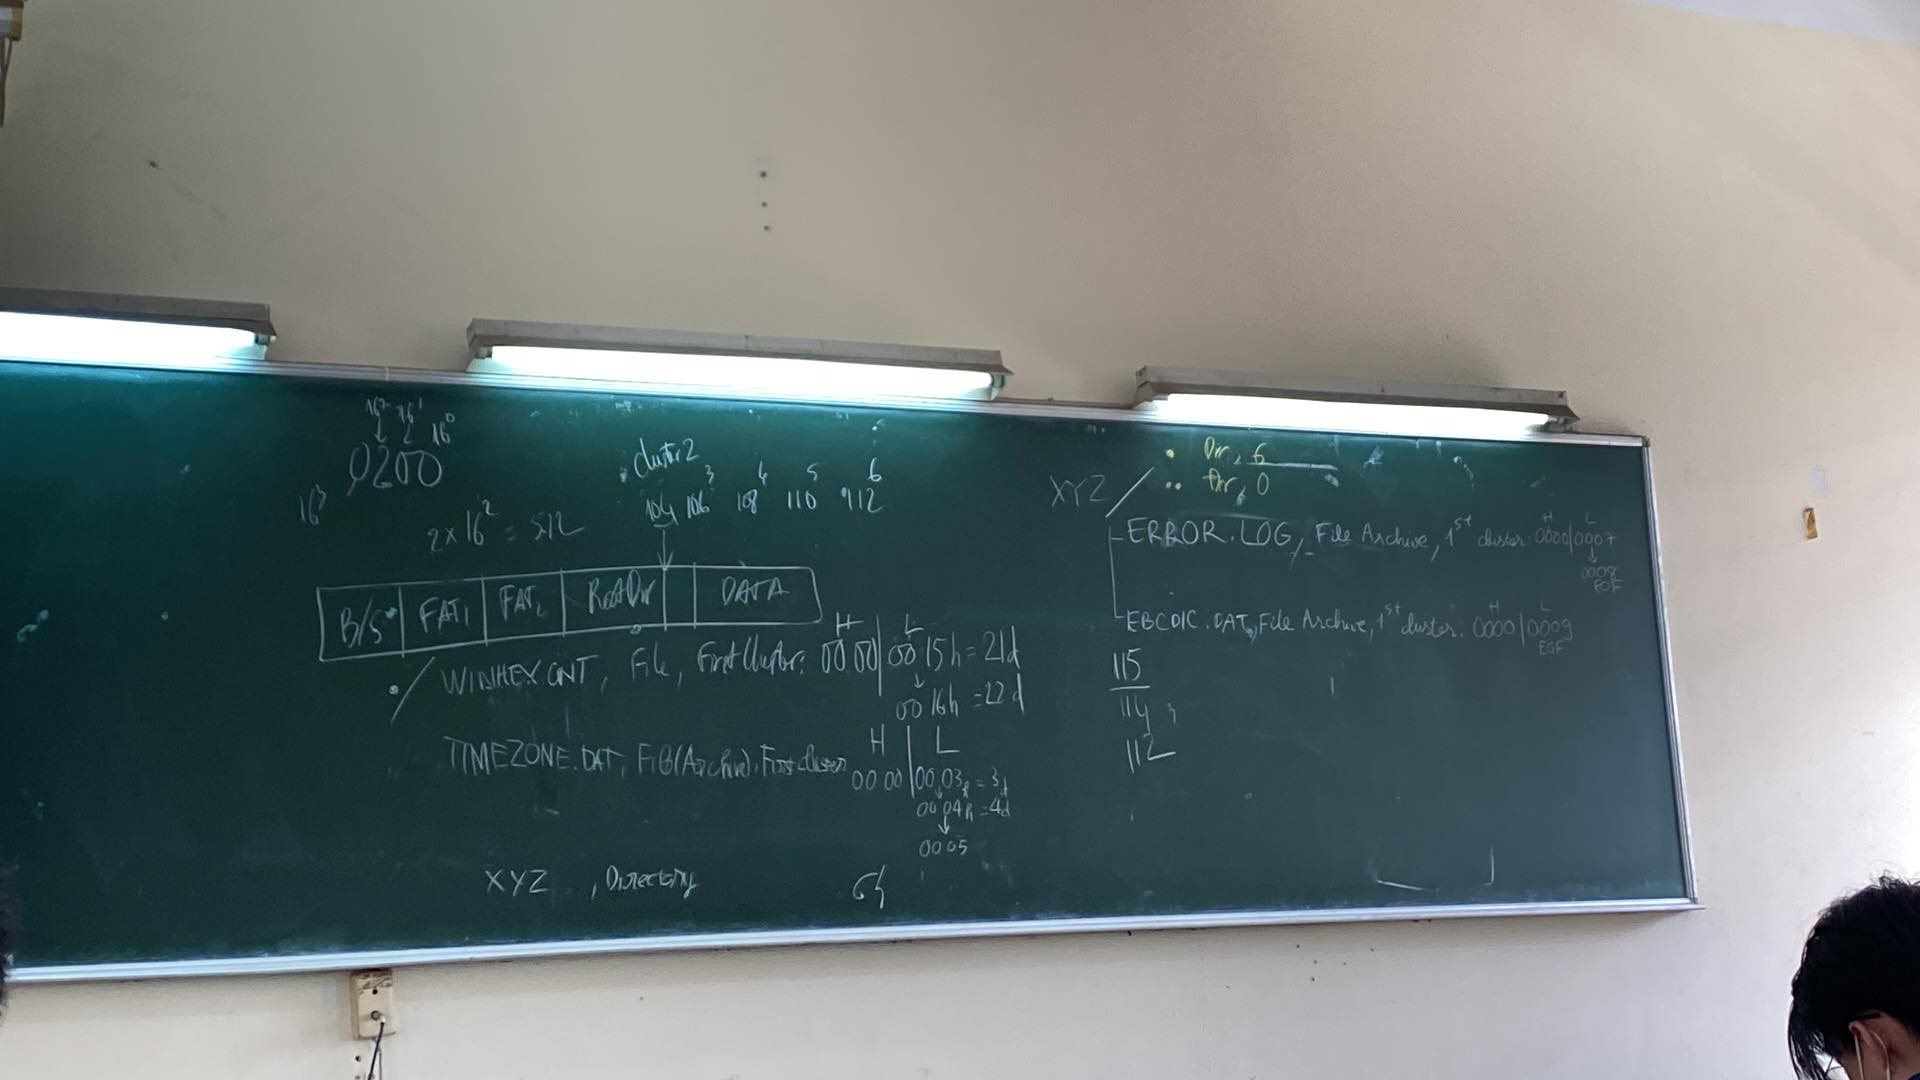 16² 16¹ 16⁰
0200
16³
2×16² = 512
cluster 2 3 4 5 6
104 106 108 110 112
B/S FAT1 FAT2 RootDir DATA
/ WINHEX.CNT, File, First Cluster: H L 00 00 | 00 15h = 21d
00 16h = 22d
TIMEZONE.DAT, File (Archive), First cluster H | L
00 00 | 00 03h = 3d
00 04h = 4d
00 05
XYZ , Directory 6h
XYZ / . Dir, 6
.. Dir, 0
ERROR.LOG, File Archive, 1st cluster: H L 0000|0007
0008
EOF
EBCDIC.DAT, File Archive, 1st cluster: H L 0000|0009
EOF
115
114
112